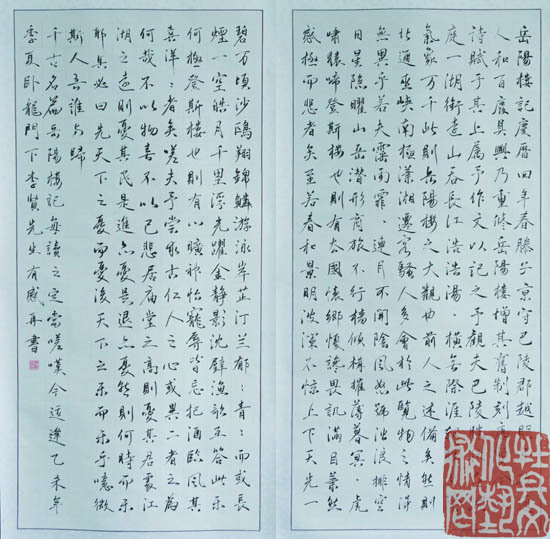 岳陽樓記慶曆四年春滕子京守巴陵郡越明
人和百廢具興乃重修岳陽樓增其舊制刻
詩賦于其上屬予作文以記之予觀夫巴陵勝
庭一湖銜遠山吞長江浩浩湯:橫無際涯
氣象万千此則岳陽樓之大觀也前人之述備矣然則
北通巫峽南極瀟湘遷客騷人多會於此覽物之情得
無異乎若夫霪雨霏:連月不開陰風怒號濁浪排空
日星隱曜山岳潛形商旅不行檣傾楫摧薄暮冥:虎
嘯猿啼登斯樓也則有去國懷鄉憂讒畏譏滿目蕭然
感極而悲者矣至若春和景明波瀾不惊上下天光一
碧万頃沙鷗翔錦鱗游泳岸芷汀蘭郁:青:而或長
煙一空皓月千里浮光躍金靜影沈璧漁歌互答此樂
何極登斯樓也則有心曠神怡寵辱皆忘把酒臨風其
喜洋:者矣嗟夫予嘗求古仁人之心或異二者之為
何哉不以物喜不以己悲居庙堂之高則憂其君處江
湖之遠則憂其民是進亦憂退亦憂然則何時而樂
耶其必曰先天下之憂而憂後天下之樂而樂乎噫微
斯人吾誰与歸
千古名篇岳陽樓記每讀之定當嗟嘆今适逢乙未年
季夏卧龍門下李賢先生有感再書
杜兵文
化藝
術網